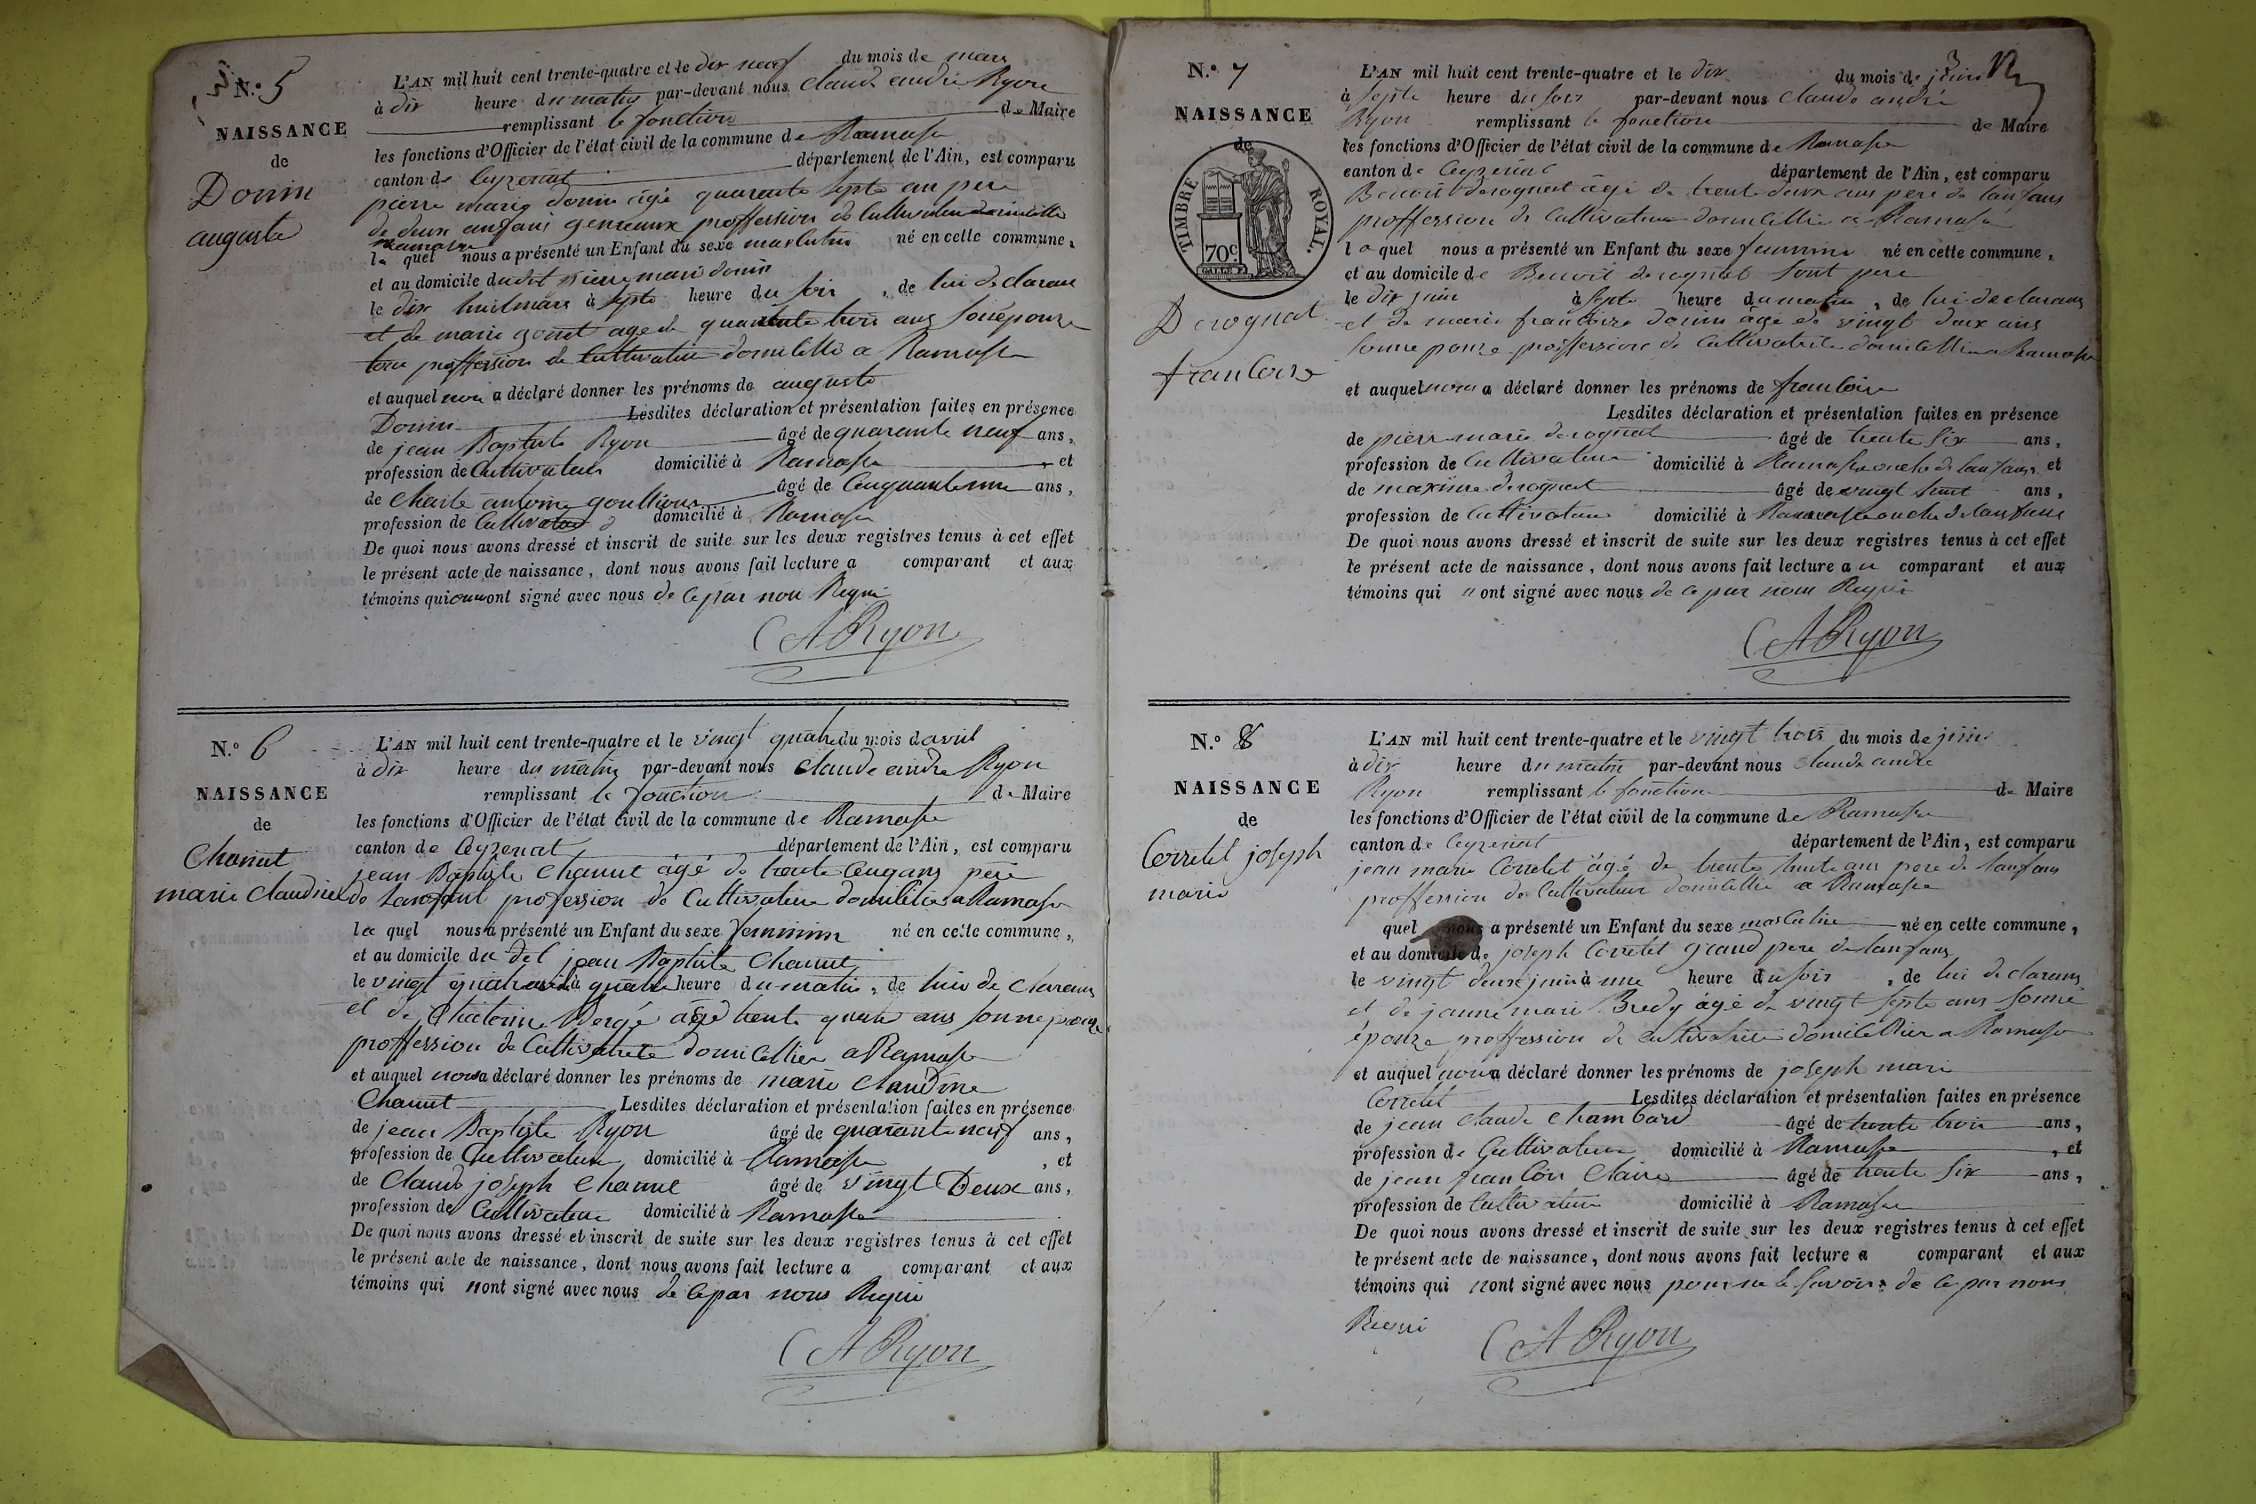 N.º 5
NAISSANCE
de
Donin
auguste
L'AN mil huit cent trente-quatre et le dix neuf du mois de mars
à dix heure du matin par-devant nous claude andré Ryon
remplissant le fonction de Maire
les fonctions d'Officier de l'état civil de la commune de Ramasse
canton de Ceyzeriat département de l'Ain, est comparu
pierre marie donin âgé quarante septe an pere
de deux anfans gemeaux proffession de Cultivateur domicillie
Ramasse
le quel nous a présenté un Enfant du sexe masculin né en cette commune,
et au domicile dudit pierre marie donin
le dix huit mars à septe heure du soir, de lui declarant
et de marie agée de quarante trois ans son épouze
proffession de Cultivateur domicillie a Ramasse
et auquel nous a déclaré donner les prénoms de auguste
Donin Lesdites déclaration et présentation faites en présence
de jean Baptiste Ryon âgé de quarante neuf ans,
profession de Cultivateur domicilié à Ramasse et
de Charle antoine âgé de ans,
profession de Cultivateur domicilié à Ramasse
De quoi nous avons dressé et inscrit de suite sur les deux registres tenus à cet effet
le présent acte de naissance, dont nous avons fait lecture a comparant et aux
témoins qui ont signé avec nous de ce par nou Requi
CA Ryon
N.º 6
NAISSANCE
de
Chanut
marie Claudine
L'AN mil huit cent trente-quatre et le vingt quatre du mois d avril
à dix heure du matin par-devant nous claude andre Ryon
remplissant le fonction de Maire
les fonctions d'Officier de l'état civil de la commune de Ramasse
canton de Ceyzeriat département de l'Ain, est comparu
jean Baptiste Chanut âgé de trente Cinq ans père
de lanfant profession de Cultivateur domicilie a Ramasse
le quel nous a présenté un Enfant du sexe feminin né en cette commune,
et au domicile du det jean Baptiste Chanut
le vingt quatre avril à quatre heure du matin, de lui de clarant
et de Chaterine Bergé âgé trente quatre ans sonne epouze
proffession de Cultivatrice domicillier a Ramasse
et auquel nous a déclaré donner les prénoms de marie claudine
Chanut Lesdites déclaration et présentation faites en présence
de jean Baptiste Ryon âgé de quarante neuf ans,
profession de Cultivateur domicilié à Ramasse, et
de Claude joseph Chanut âgé de vingt Deux ans,
profession de Cultivateur domicilié à Ramasse
De quoi nous avons dressé et inscrit de suite sur les deux registres tenus à cet effet
le présent acte de naissance, dont nous avons fait lecture a comparant et aux
témoins qui nont signé avec nous de ce par nous Requi
CA Ryon
N.º 7
NAISSANCE
de
TIMBRE ROYAL.
70c
Derognat
francoise
L'AN mil huit cent trente-quatre et le dix du mois de juin
à septe heure du soir par-devant nous claude andré
Ryon remplissant le fonction de Maire
les fonctions d'Officier de l'état civil de la commune de Ramasse
canton de Ceyzeriat département de l'Ain, est comparu
Benoit derognat âgé de trente deux ans pere de lanfans
proffession de Cultivateur domicillie à Ramasse
la quel nous a présenté un Enfant du sexe feminin né en cette commune,
et au domicile de Benoit derognat sont pere
le dix juin à septe heure du matin, de lui declarans
et de marie francoise donin âgé de vingt deux ans
sonne epouze proffession de Cultivatrice domicillie a Ramasse
et auquel nous a déclaré donner les prénoms de francoise
Lesdites déclaration et présentation faites en présence
de pierre marie derognat âgé de trente six ans,
profession de Cultivateur domicilié à Ramasse oncle de lanfans et
de maxime derognat âgé de vingt huit ans,
profession de Cultivateur domicilié à Ramasse oncle de lanfans
De quoi nous avons dressé et inscrit de suite sur les deux registres tenus à cet effet
le présent acte de naissance, dont nous avons fait lecture a u comparant et aux
témoins qui n ont signé avec nous de ce par nous Requi
CA Ryon
N.º 8
NAISSANCE
de
Corretet joseph
marie
L'AN mil huit cent trente-quatre et le vingt trois du mois de juin
à dix heure du matin par-devant nous claude andre
Ryon remplissant le fonction de Maire
les fonctions d'Officier de l'état civil de la commune de Ramasse
canton de Ceyzeriat département de l'Ain, est comparu
jean marie Corretet âgé de trente huite ans pere de lanfans
proffession de Cultivateur domicillie a Ramasse
quel nous a présenté un Enfant du sexe masculin né en cette commune,
et au domicile de joseph Corretet grand pere de lanfans
le vingt deux juin à une heure du soir, de lui declarans
et de janne marie Bredy âgé de vingt septe ans sonne
épouze proffession de cultivatrice domicillier a Ramasse
et auquel nous a déclaré donner les prénoms de joseph marie
Corretet Lesdites déclaration et présentation faites en présence
de jean claude Chambard âgé de trente trois ans,
profession de Cultivateur domicilié à Ramasse, et
de jean francois Claire âgé de trente six ans,
profession de Cultivateur domicilié à Ramasse
De quoi nous avons dressé et inscrit de suite sur les deux registres tenus à cet effet
le présent acte de naissance, dont nous avons fait lecture a comparant et aux
témoins qui nont signé avec nous pour ne le savoir de ce par nous
Requi CA Ryon